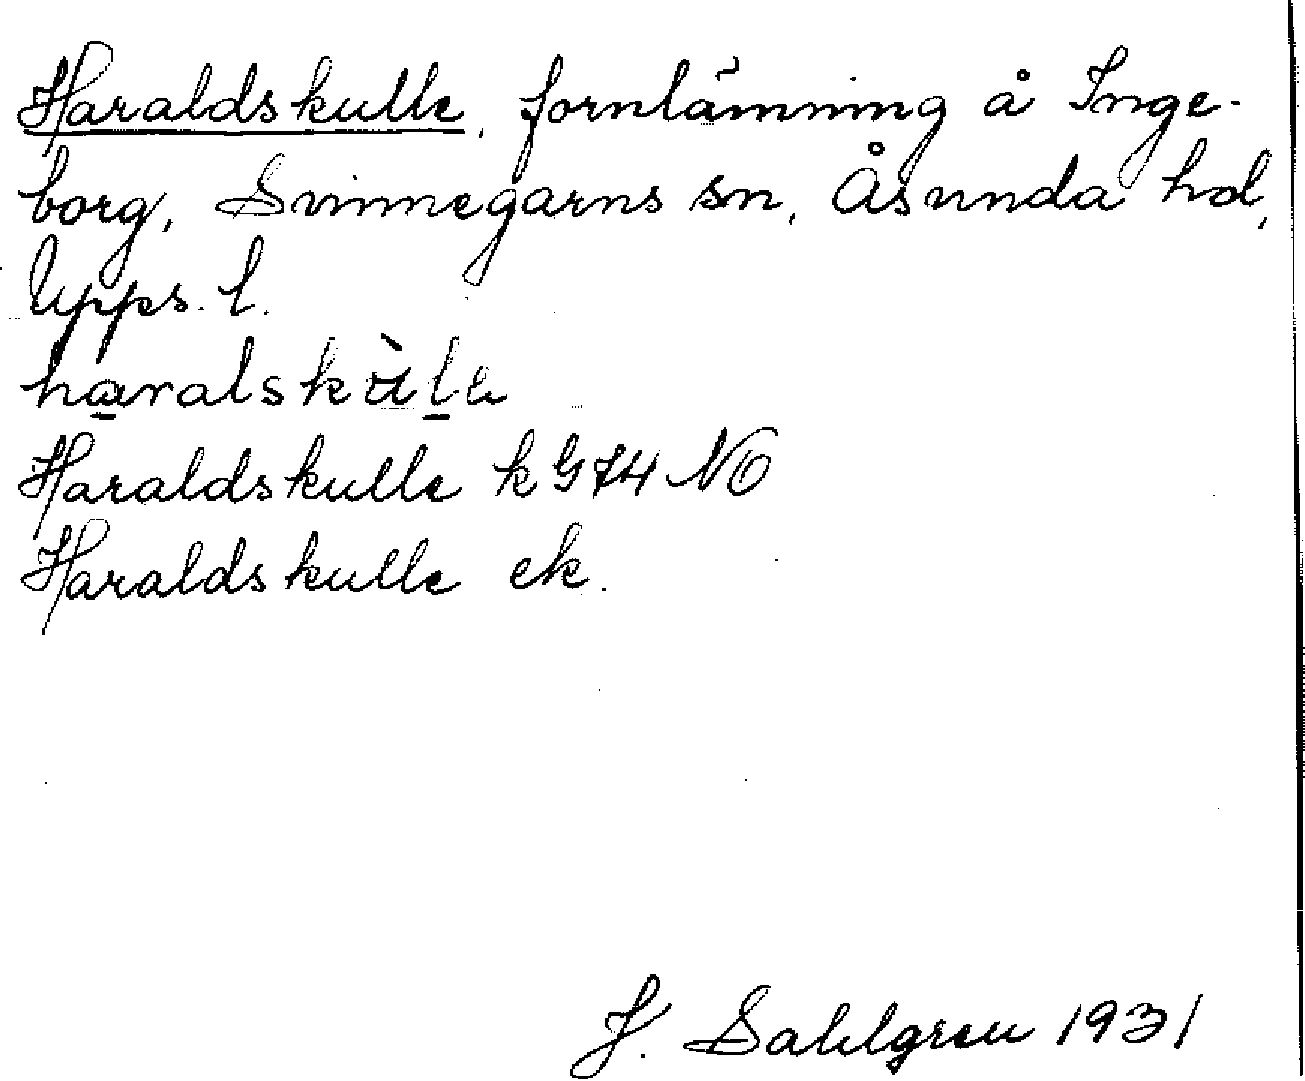 Haraldskulle, fornlämning å Inge-
borg, Svinnegarns sn, Åsunda hd,
Upps. l.
haralskùlle
Haraldskulle k G 74 NO
Haraldskulle ek.
J. Sahlgren 1931